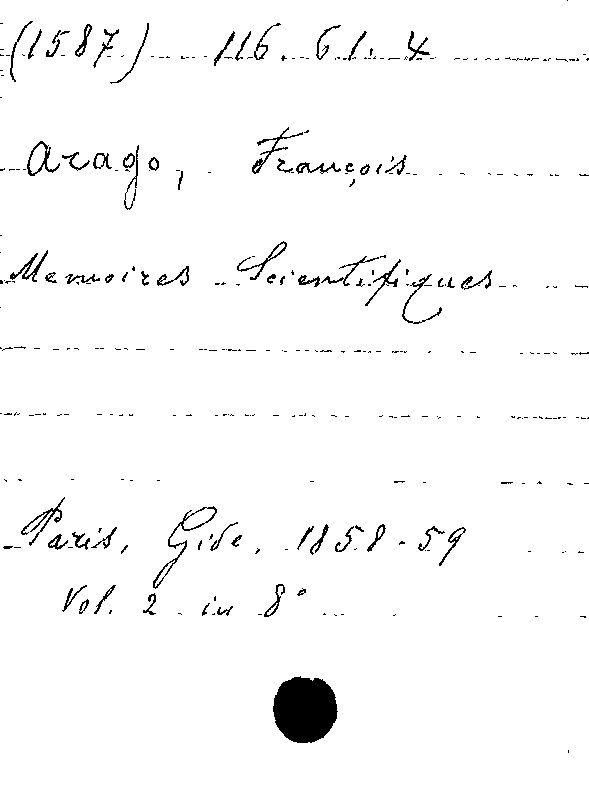 (1587) 116. 61. 4
Arago, François
Memoires Scientifiques
Paris, Gide, 1858-59
Vol. 2 in 8°